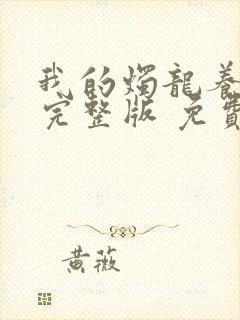 我的燭龍養
完整版 免費
黃薇